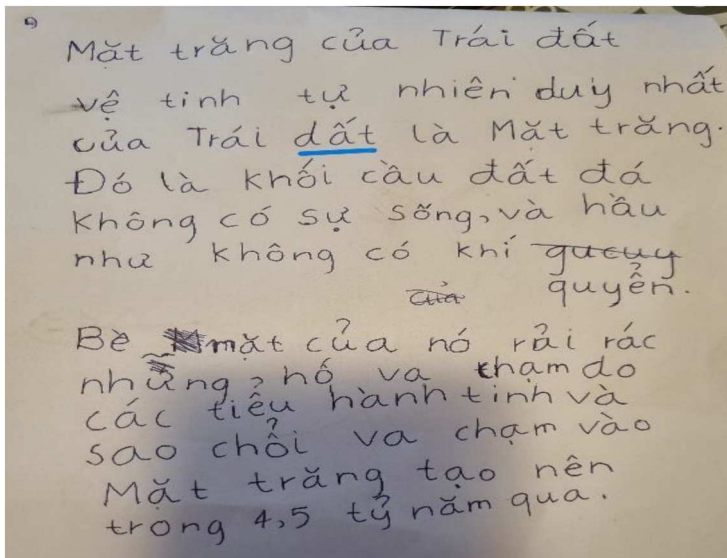 Mặt trăng của Trái đất
vệ tinh tự nhiên duy nhất
của Trái dất là Mặt trăng.
Đó là khối cầu đất đá
không có sự sống, và hầu
như không có khí
quyển.
Bề mặt của nó rải rác
những hố va chạm do
các tiểu hành tinh và
sao chổi va chạm vào
Mặt trăng tạo nên
trong 4,5 tỷ năm qua.